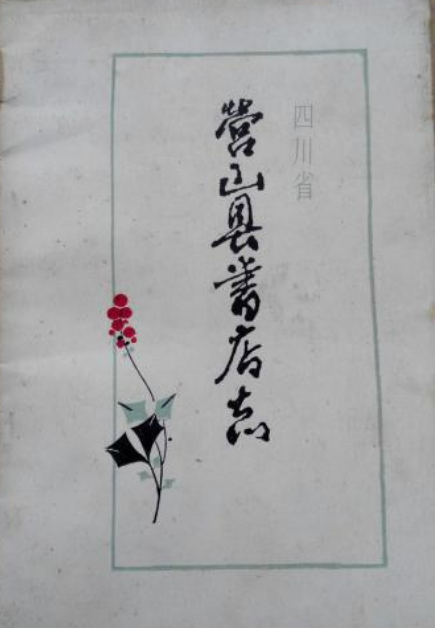 四川省
营山县書店志